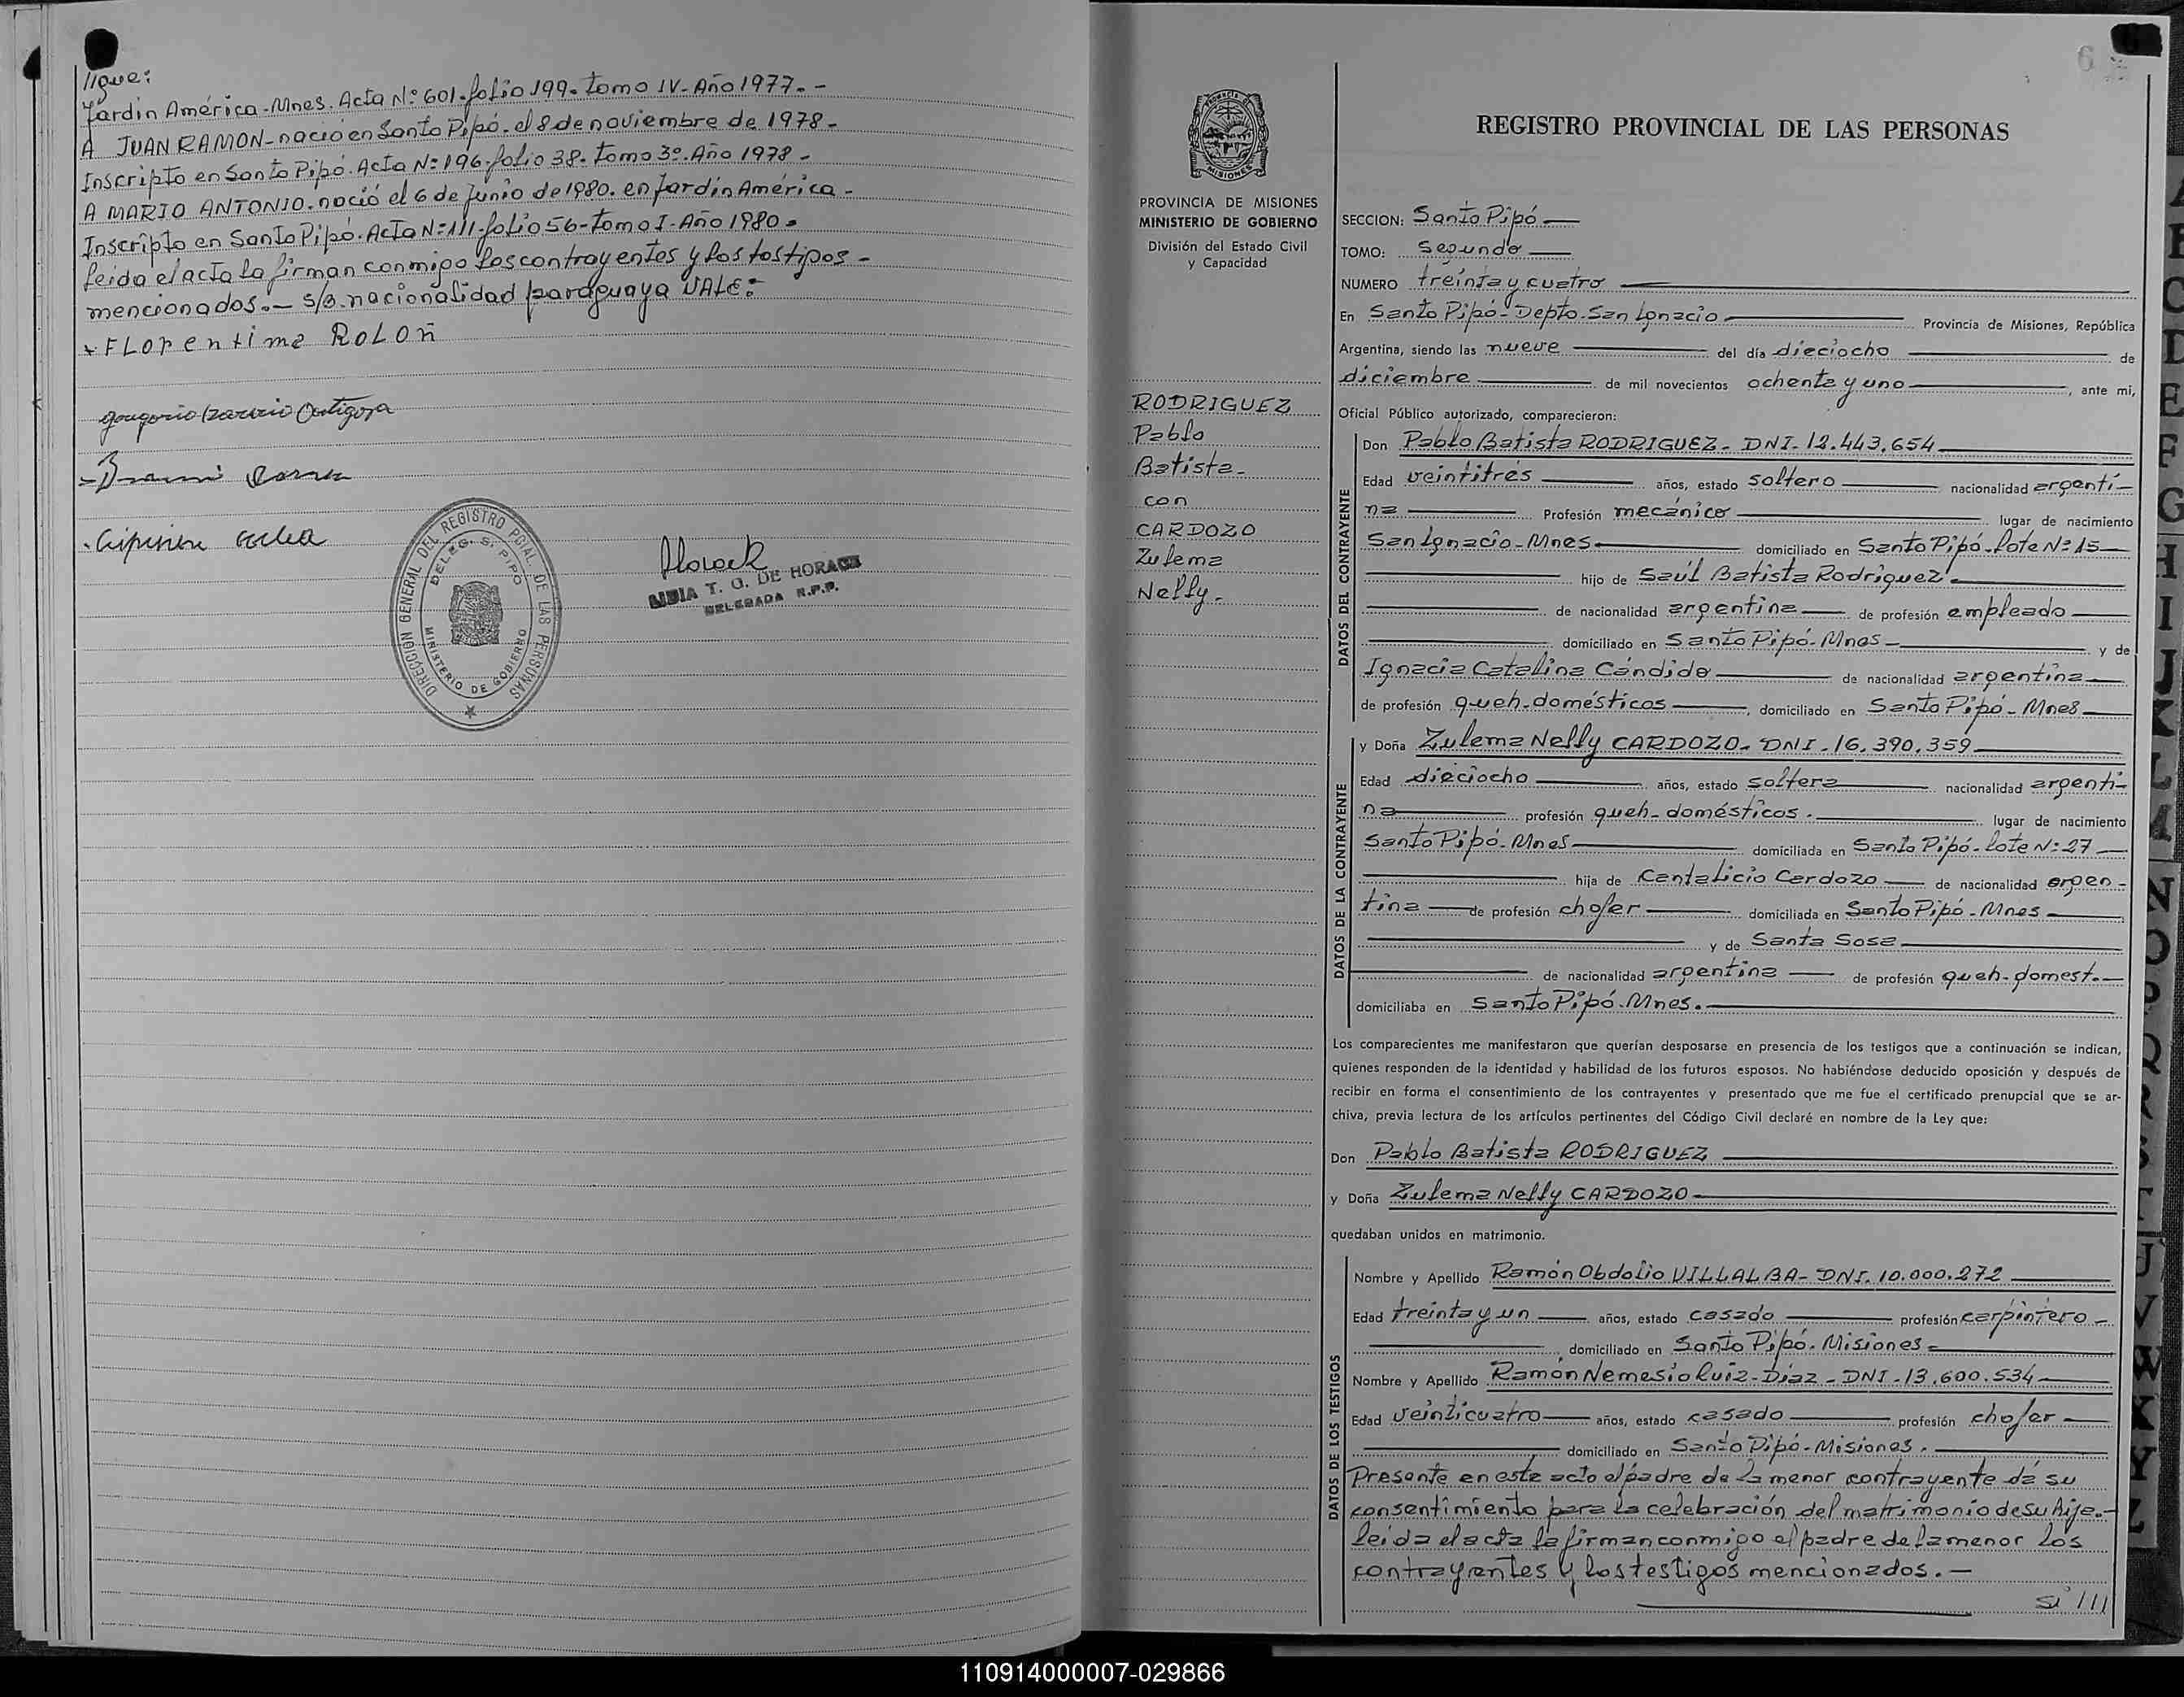 Jardin América - Mnes. Acta Nº 601 - folio 199 - tomo IV - Año 1977. -
A JUAN RAMON - nació en Santo Pipó. el 8 de noviembre de 1978 -
Inscripto en Santo Pipó. Acta Nº 196 - folio 38 - tomo 3º - Año 1978 -
A MARIO ANTONIO. nació el 6 de Junio de 1980. en Jardín América -
Inscripto en Santo Pipó. Acta Nº 111 - folio 56 - tomo I - Año 1980 -
leida el acta la firman conmigo los contrayentes y los testigos -
mencionados. - s/b. nacionalidad paraguaya VALE: -
DIRECCIÓN GENERAL DEL REGISTRO PCIAL. DE LAS PERSONAS
DELEG. S. PIPO
MINISTERIO DE GOBIERNO
T. G. DE HORACK
DELEGADA R.P.P.
PROVINCIA DE MISIONES
MINISTERIO DE GOBIERNO
División del Estado Civil
y Capacidad
RODRIGUEZ
Pablo
Batista -
con
CARDOZO
Zulema
Nelly -
REGISTRO PROVINCIAL DE LAS PERSONAS
SECCION: Santo Pipó
TOMO: Segundo
NUMERO treinta y cuatro
En Santo Pipó - Depto. San Ignacio Provincia de Misiones, República
Argentina, siendo las nueve del día dieciocho de
diciembre de mil novecientos ochenta y uno, ante mi,
Oficial Público autorizado, comparecieron:
DATOS DEL CONTRAYENTE
Don Pablo Batista RODRIGUEZ - DNI - 12.443.654
Edad veintitrés años, estado soltero nacionalidad argenti-
na Profesión mecánico lugar de nacimiento
San Ignacio - Mnes domiciliado en Santo Pipó - lote Nº 15
hijo de Saúl Batista Rodríguez
de nacionalidad argentina de profesión empleado
domiciliado en Santo Pipó - Mnes y de
Ignacia Catalina Cándido de nacionalidad argentina
de profesión queh. domésticos, domiciliado en Santo Pipó - Mnes
DATOS DE LA CONTRAYENTE
y Doña Zulema Nelly CARDOZO - DNI - 16.390.359
Edad dieciocho años, estado soltera nacionalidad argenti-
na profesión queh - domésticos. lugar de nacimiento
Santo Pipó - Mnes domiciliada en Santo Pipó - lote Nº 27
hija de Cantalicio Cardozo de nacionalidad argen-
tina de profesión chofer domiciliada en Santo Pipó - Mnes
y de Santa Sosa
de nacionalidad argentina de profesión queh - domest.
domiciliaba en Santo Pipó - Mnes.
Los comparecientes me manifestaron que querían desposarse en presencia de los testigos que a continuación se indican,
quienes responden de la identidad y habilidad de los futuros esposos. No habiéndose deducido oposición y después de
recibir en forma el consentimiento de los contrayentes y presentado que me fue el certificado prenupcial que se ar-
chiva, previa lectura de los artículos pertinentes del Código Civil declaré en nombre de la Ley que:
Don Pablo Batista RODRIGUEZ
y Doña Zulema Nelly CARDOZO
quedaban unidos en matrimonio.
DATOS DE LOS TESTIGOS
Nombre y Apellido Ramón Obdolio VILLALBA - DNI. 10.000.272
Edad treinta y un años, estado casado profesión carpintero -
domiciliado en Santo Pipó - Misiones
Nombre y Apellido Ramón Nemesio Ruiz - Díaz - DNI - 13.600.534
Edad veinticuatro años, estado casado profesión chofer
domiciliado en Santo Pipó - Misiones.
Presente en este acto el padre de la menor contrayente dá su
consentimiento para la celebración del matrimonio de su hija. -
leida el acta la firman conmigo el padre de la menor los
contrayentes y los testigos mencionados. -
110914000007-029866